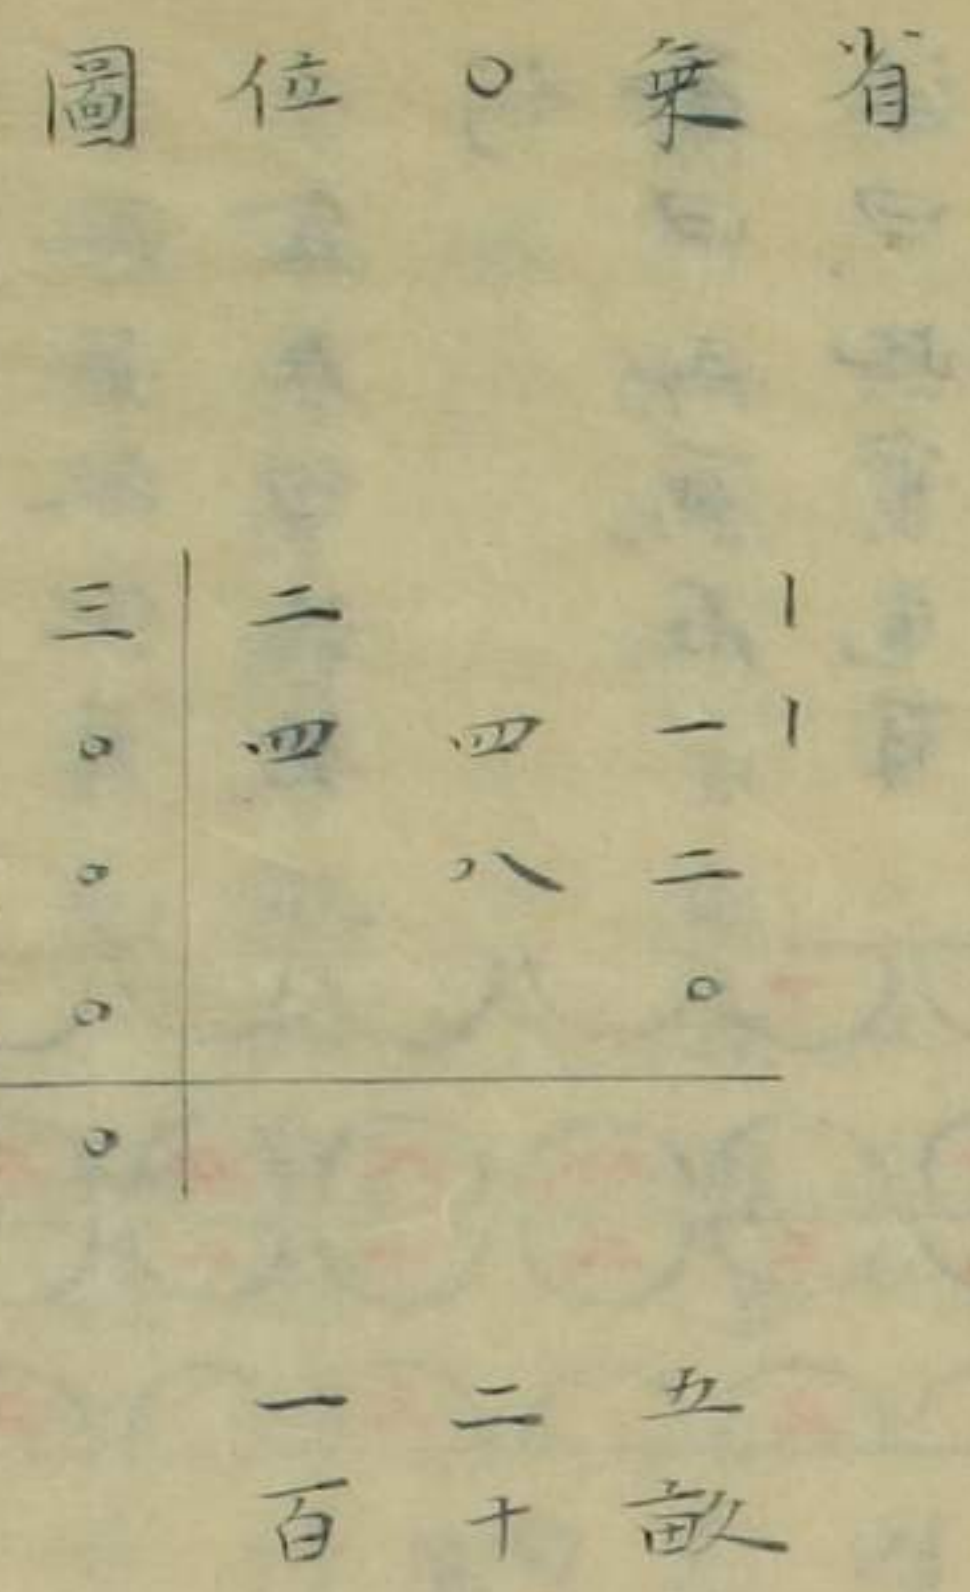 省乗〇位圖
丨丨
一二〇
四八
二四
三〇〇〇〇
五畝
二十
一百